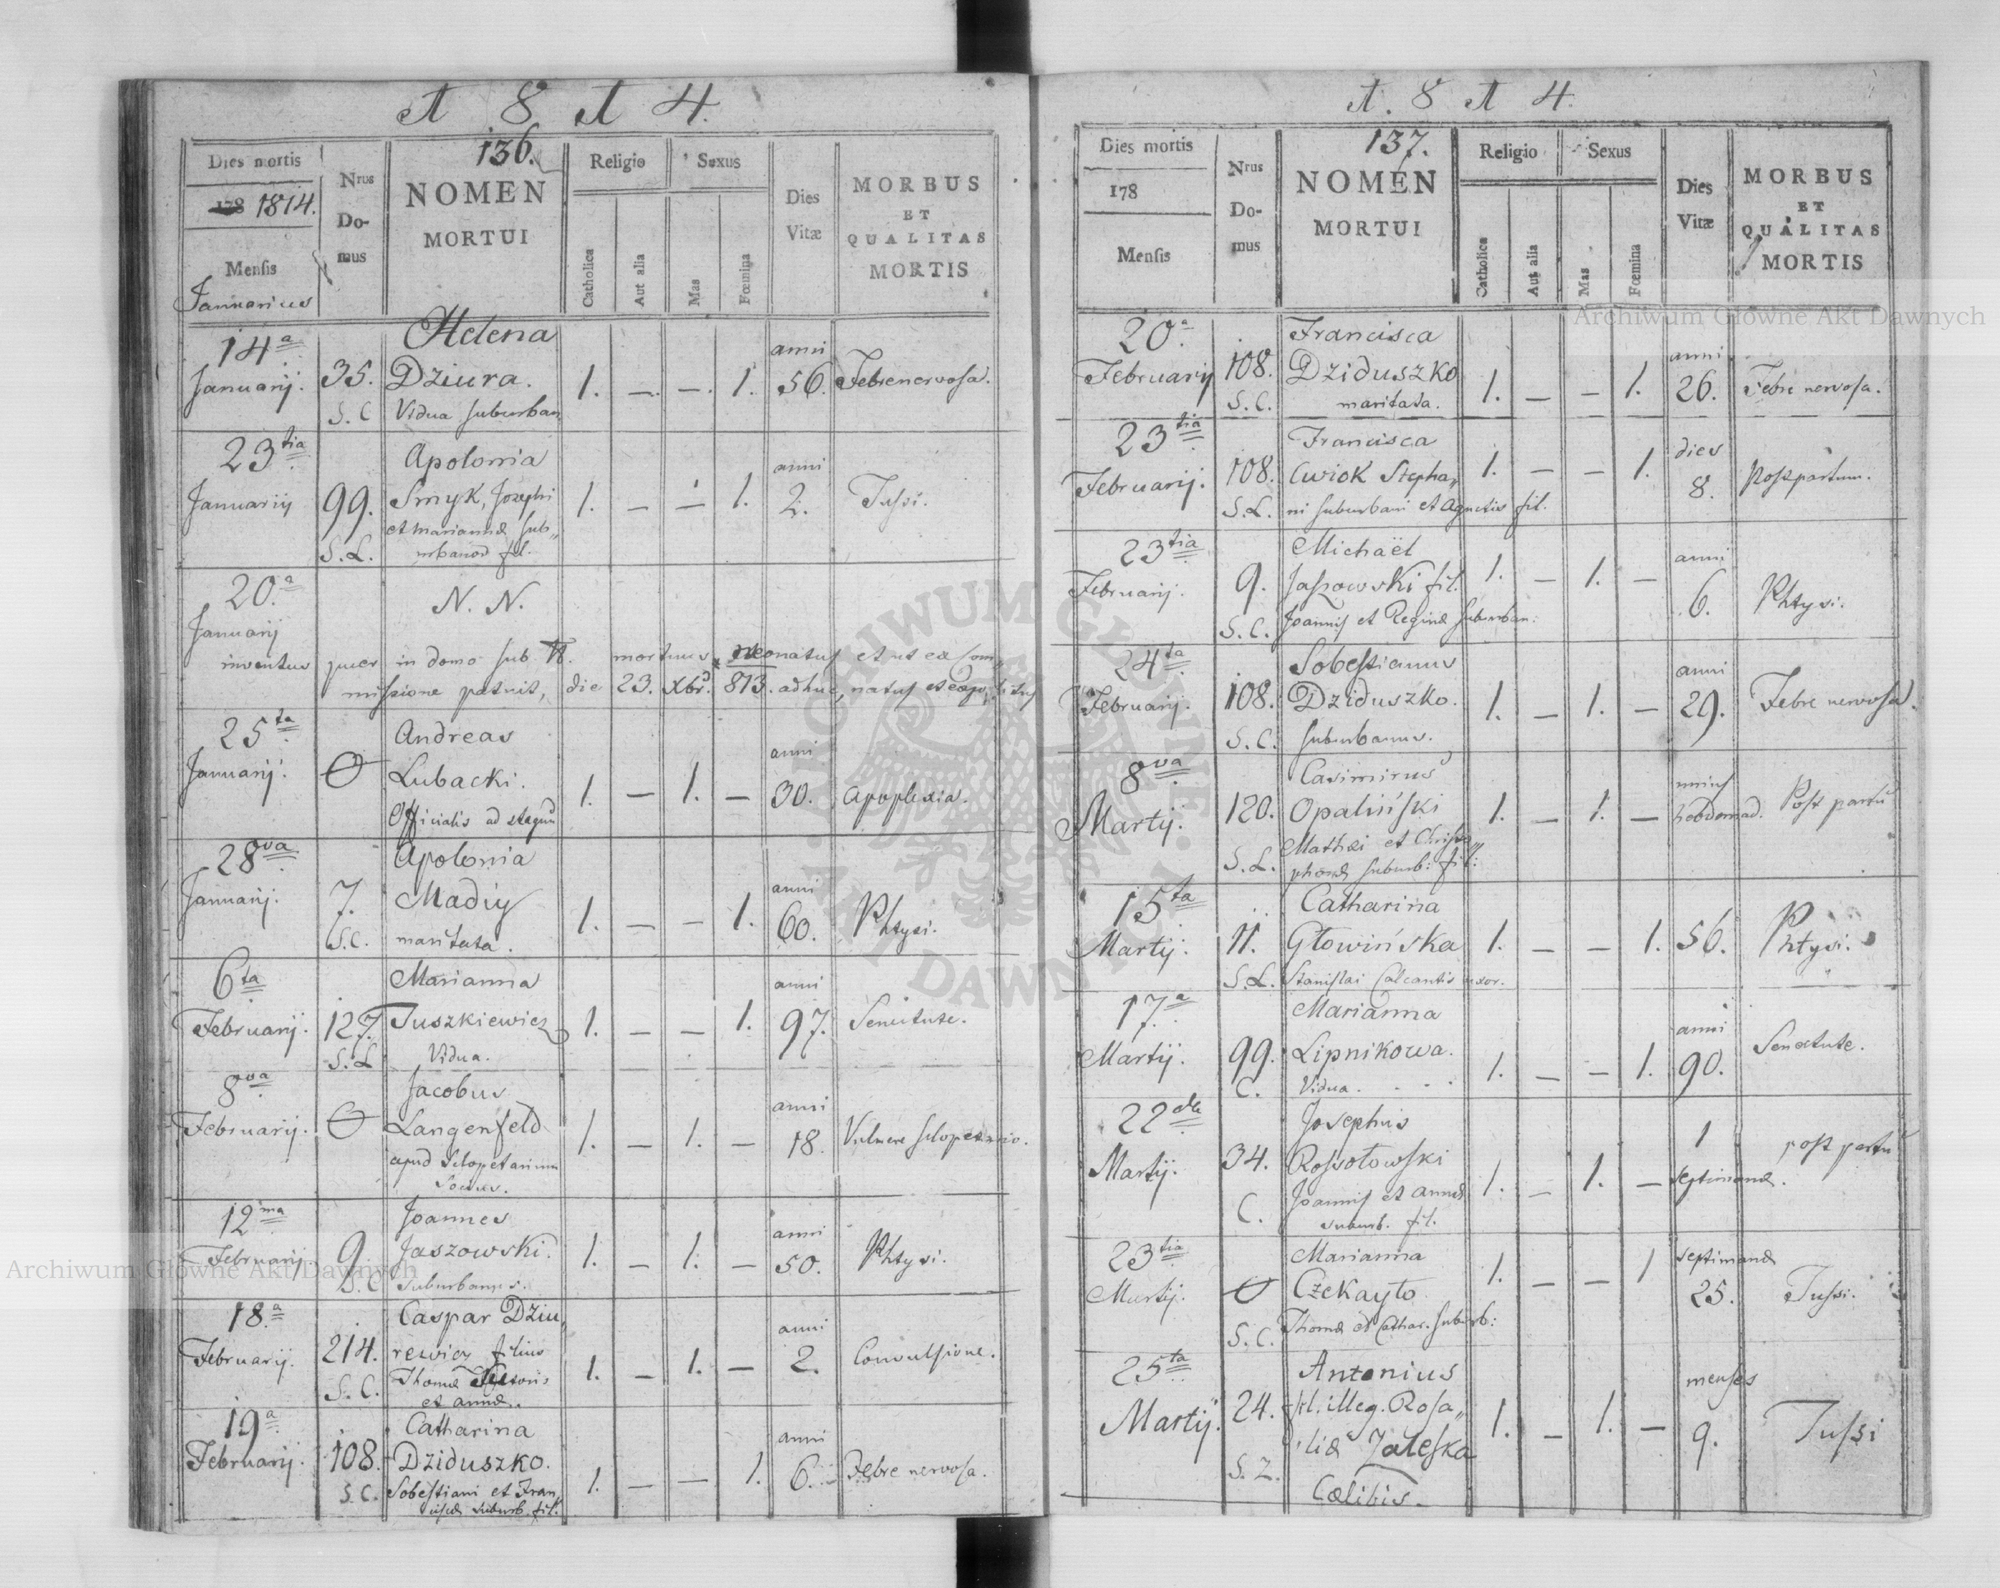 A 8 A 4.
136.
Dies mortis
178 1814.
Mensis
Januarius
Nrus
Do-
mus
NOMEN
MORTUI
Religio
Catholica
Aut alia
Sexus
Mas
Fœmina
Dies
Vitæ
MORBUS
ET
QUALITAS
MORTIS
14a Januarij. 35. S. C
Helena
Dziura.
Vidua suburban
1. — — 1. anni 56. Febre nervosa.
23tia Januarij 99. S. L.
Apolonia
Smyk, Josephi
et Mariannæ sub„
urbanor fil.
1. — — 1. anni 2. Tussi.
20a Januarij
N. N.
inventus puer in domo sub mortuus neonatus et ut ex com„
missione patuit, die 23. Xbr. 813. adhuc natus et expositus
25ta Januarij. O
Andreas
Lubacki.
Officialis ad
1. — 1. — anni 30. Apoplexia.
28va Januarij. 7. S.C.
Apolonia
Madiy
maritata.
1. — — 1. anni 60. Phtysi.
6ta Februarij. 127. S. L
Marianna
Juszkiewicz
Vidua.
1. — — 1. anni 97. Senectute.
8va Februarij. O
Jacobus
Langenfeld
apud Sclopetarium
Socius.
1. — 1. — anni 18. Vulnere
12ma Februarij 9. S. C
Joannes
Jaszowski.
Suburbanus.
1. — 1. — anni 50. Phtysi.
18a Februarij. 214. S. C.
Caspar Dziu„
rewicz filius
Thomæ
et Annæ.
1. — 1. — anni 2. Convulsione.
19a Februarij. 108. S. C.
Catharina
Dziduszko.
Sobestiani et Fran„
ciscæ suburb. fil.
1. — — 1. anni 6. Febre nervosa.
A. 8 A 4.
137.
Dies mortis
178
Mensis
Nrus
Do-
mus
NOMEN
MORTUI
Religio
Catholica
Aut alia
Sexus
Mas
Fœmina
Dies
Vitæ
MORBUS
ET
QUALITAS
MORTIS
20a Februarij 108. S. C.
Francisca
Dziduszko
maritata.
1. — — 1. anni 26. Febre nervosa.
23tia Februarij. 108. S. L.
Francisca
Cwiok Stepha„
ni suburbani et Agnetis fil.
1. — — 1. dies 8. Post partum.
23tia Februarij. 9. S. C.
Michaël
Jaszowski fil.
Joannis et Reginæ suburban:
1. — 1. — anni 6. Phtysi.
24ta Februarij. 108. S. C.
Sobestianus
Dziduszko.
suburbanus.
1. — 1. — anni 29. Febre nervosa.
8va Martij. 120. S. L.
Casimirus
Opaliński
Mathæi et Christo„
phoræ suburb: fil:
1. — 1. — unius hebdomad. Post partu
15ta Martij. 11. S. L.
Catharina
Głowińska
Stanislai Calcantis uxor.
1. — — 1. 56. Phtysi.
17a Martij. 99. C.
Marianna
Lipnikowa.
Vidua.
1. — — 1. anni 90. Senectute.
22da Martij. 34. C.
Josephus
Rossołowski
Joannis et Annæ
suburb. fil.
1. — 1. — 1 septimanæ. post partu
23tia Martij. O S. C.
Marianna
Czekayło
Thomæ et Cathar. suburb:
1. — — 1 septimanæ 25. Tussi.
25ta Martij. 24. S. L.
Antonius
fil. illeg. Rosa„
liæ Zaleska
Cælibis.
1. — 1. — menses 9. Tussi
Archiwum Główne Akt Dawnych
Archiwum Główne Akt Dawnych
ARCHIWUM GŁÓWNE
AKT DAWNYCH